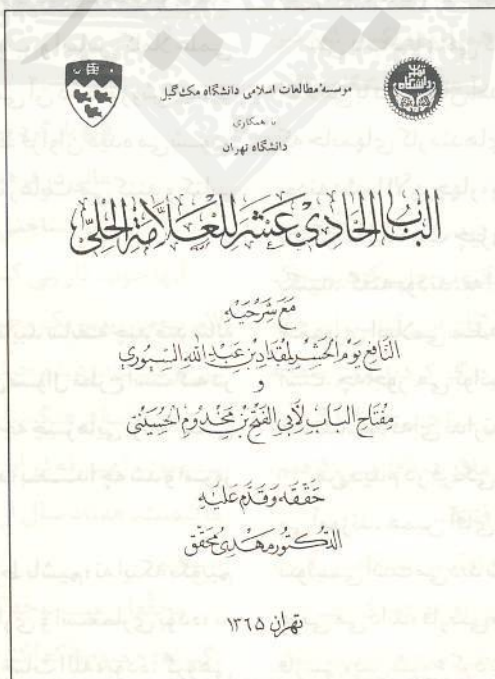 موسسهٔ مطالعات اسلامی دانشگاه مک گیل
با همکاری
دانشگاه تهران
الباب الحادی عشر للعلامة الحلی
مع شرحیه
النافع یوم الحشر لمقداد بن عبدالله السیوری
و
مفتاح الباب لأبی الفتح بن مخدوم الحسینی
حققه وقدم علیه
الدکتور مهدی محقق
تهران ۱۳۶۵